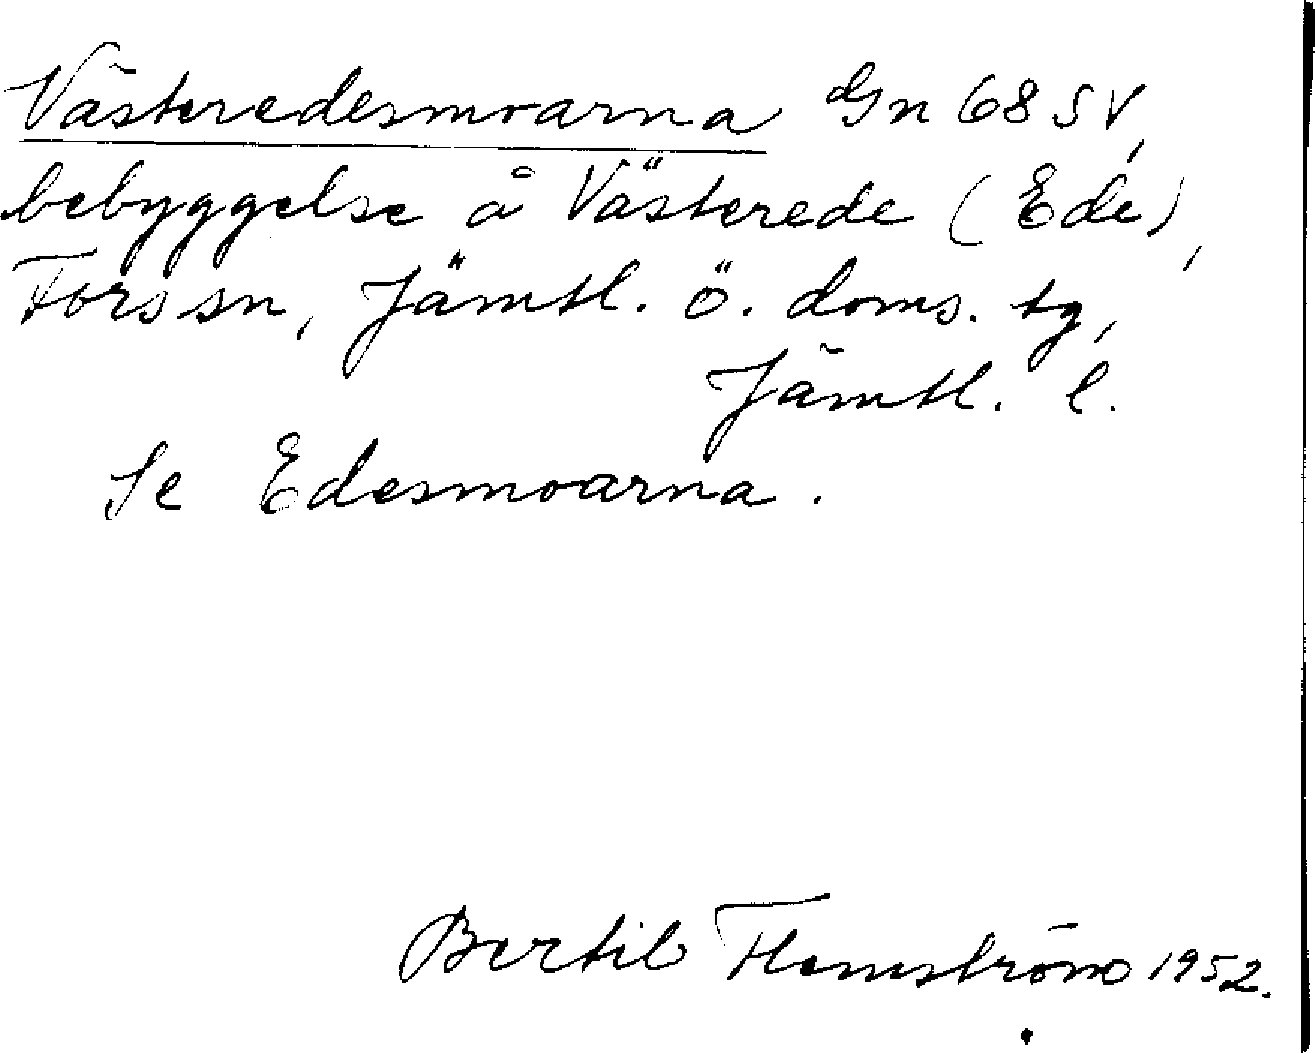 Västeredesmoarna Gn 68 SV,
bebyggelse å Västerede (Ede),
Fors sn, Jämtl. ö. doms. tg,
Jämtl. l.
Se Edesmoarna.
Bertil Flemström 1952.